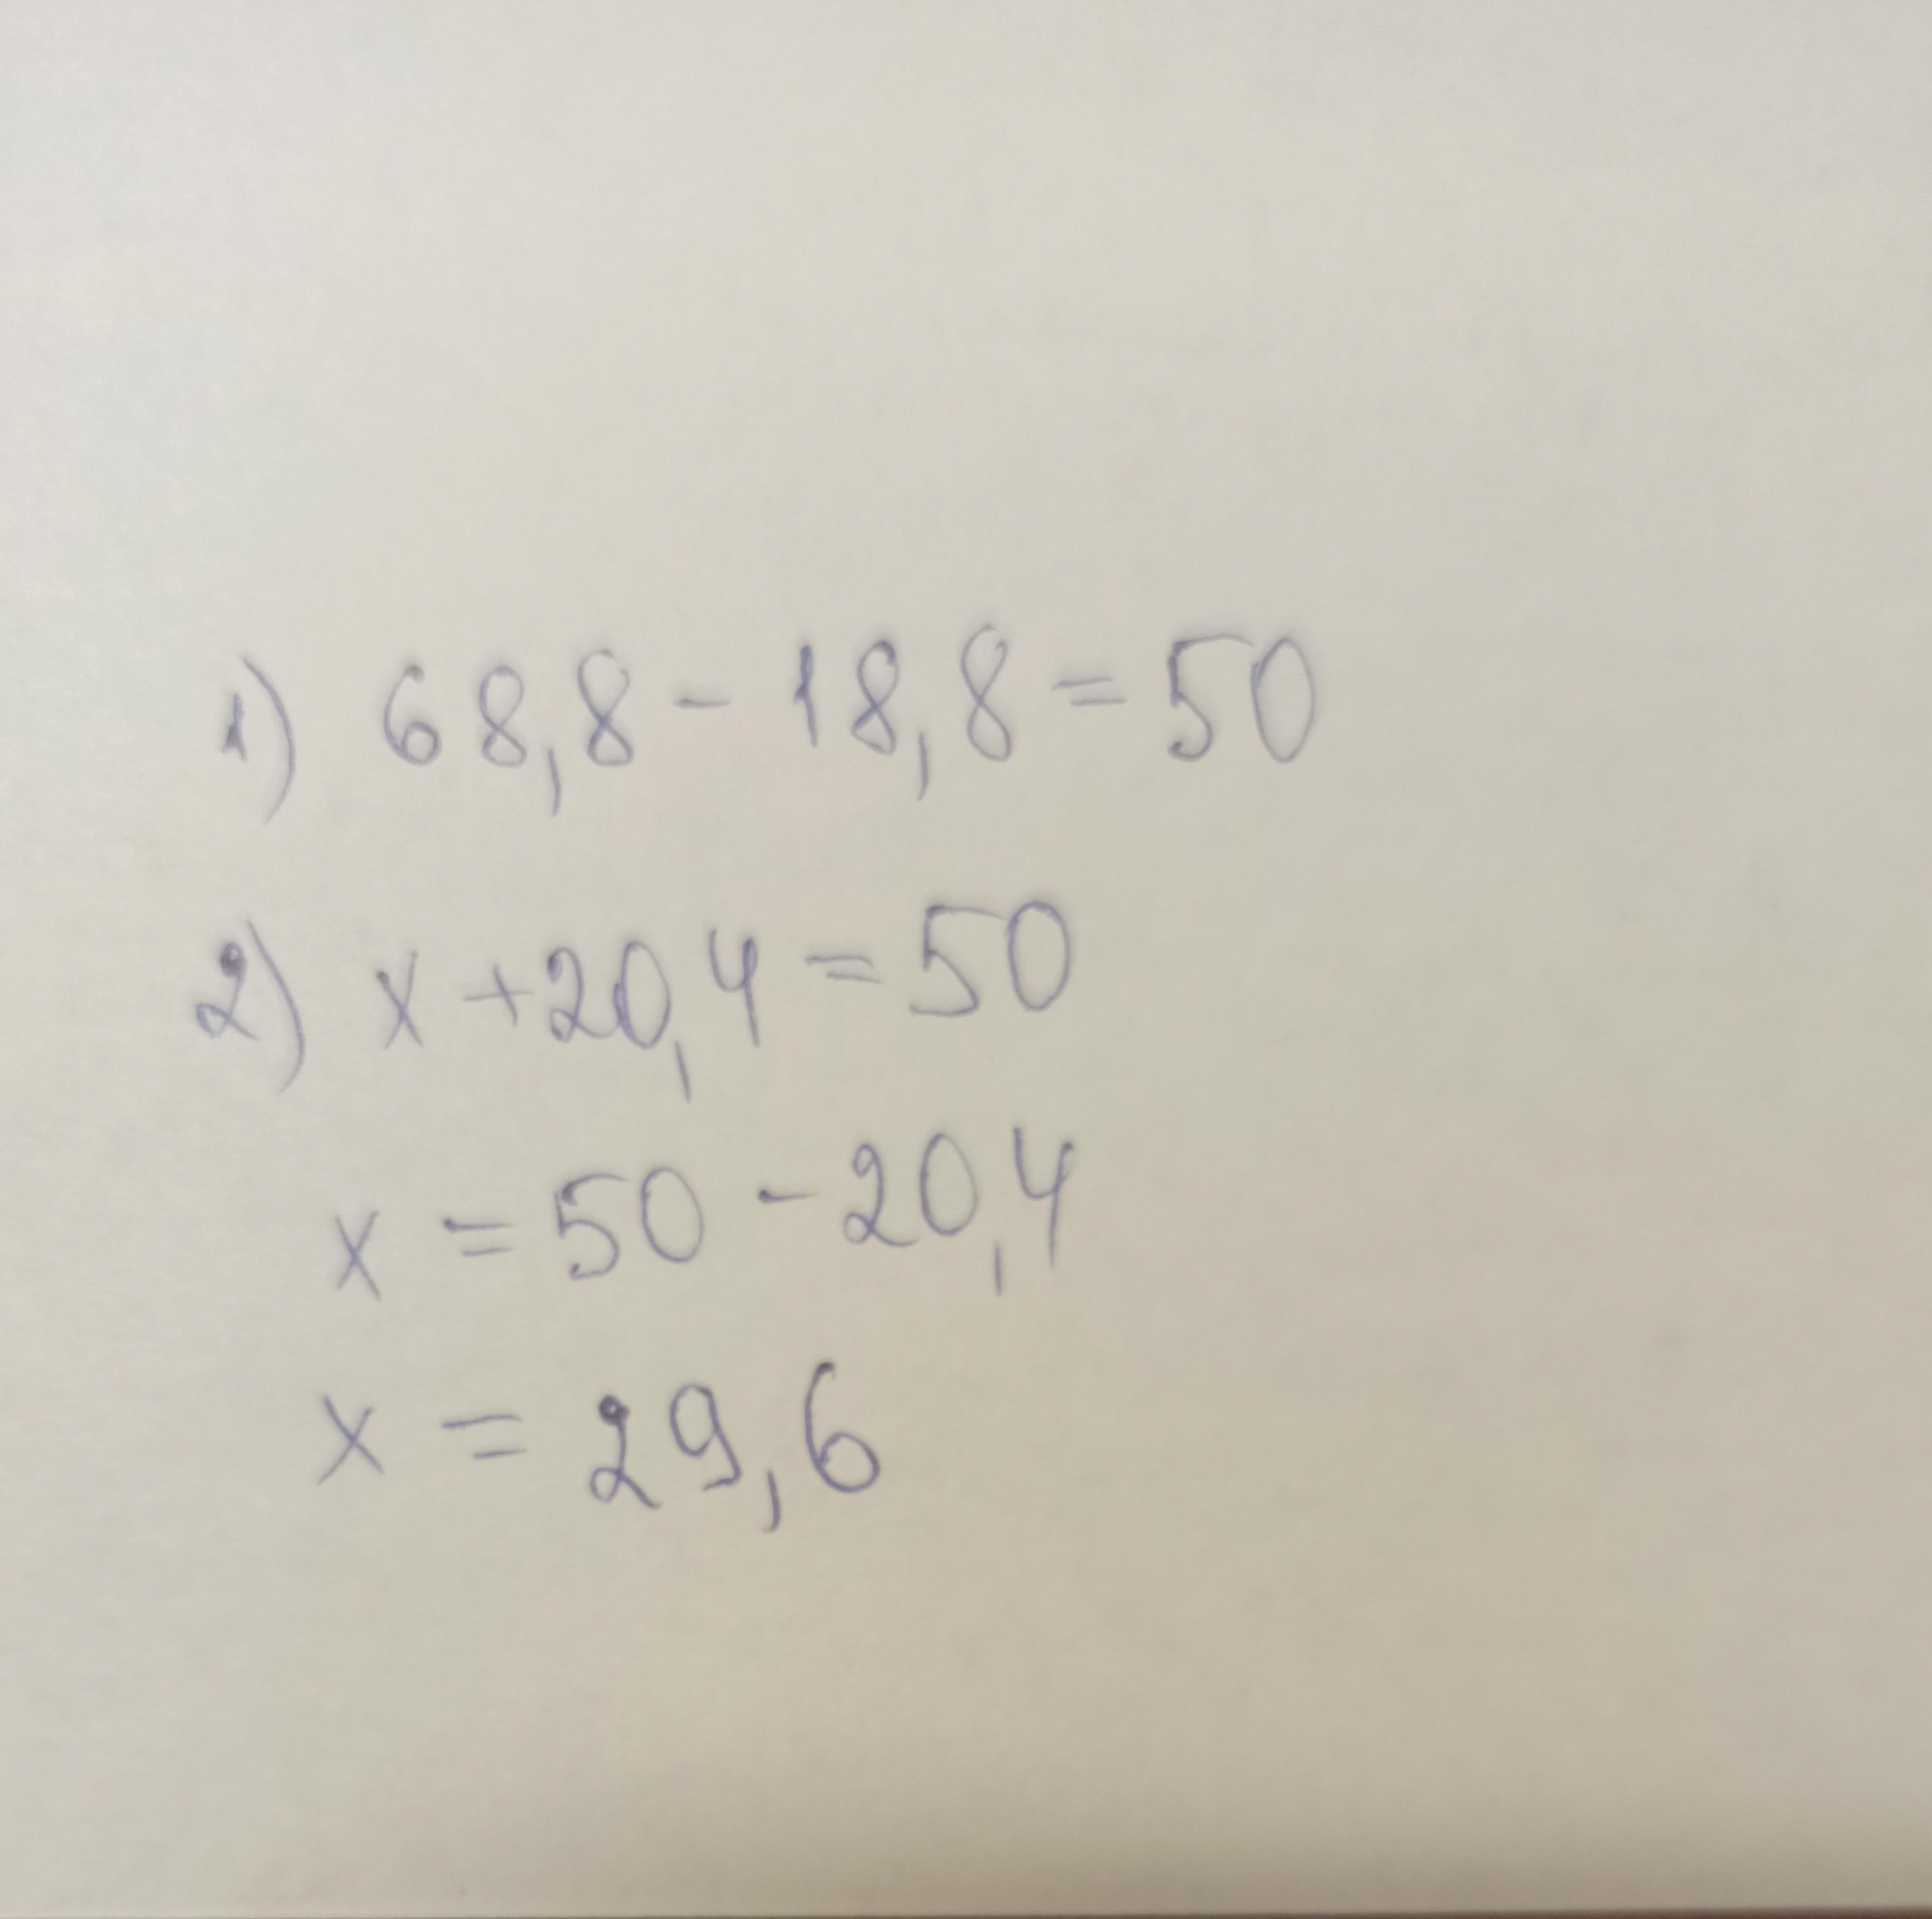 1) 68,8 - 18,8 = 50
2) x + 20,4 = 50
x = 50 - 20,4
x = 29,6